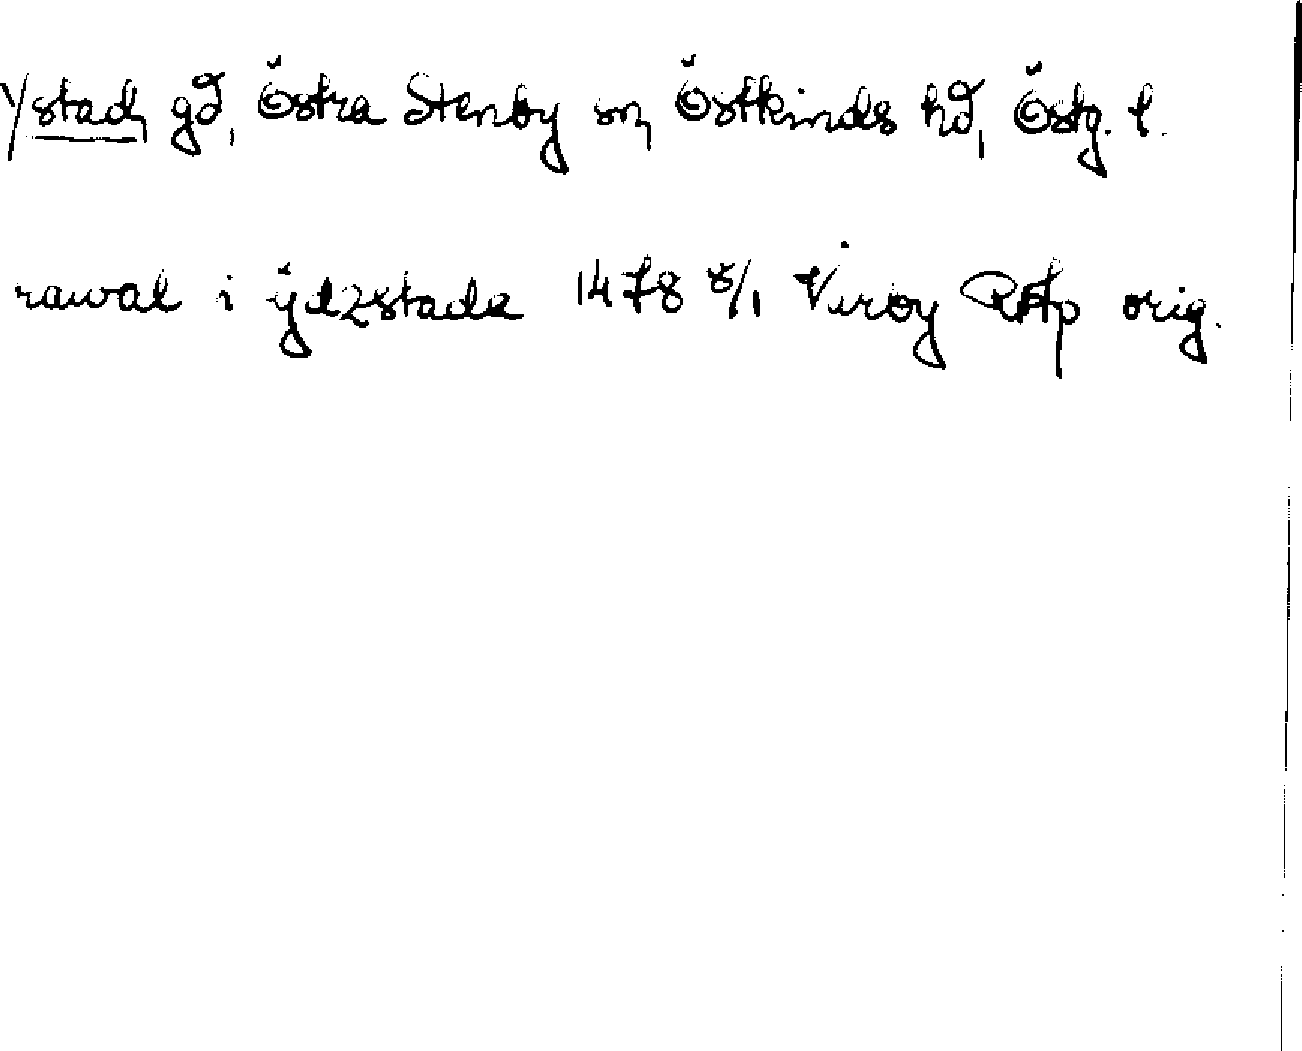 Ystad, gd, Östra Stenby sn, Östkinds hd, Östg. l.
rawal i ÿdzstada 1478 8/1 Virby RAp orig.